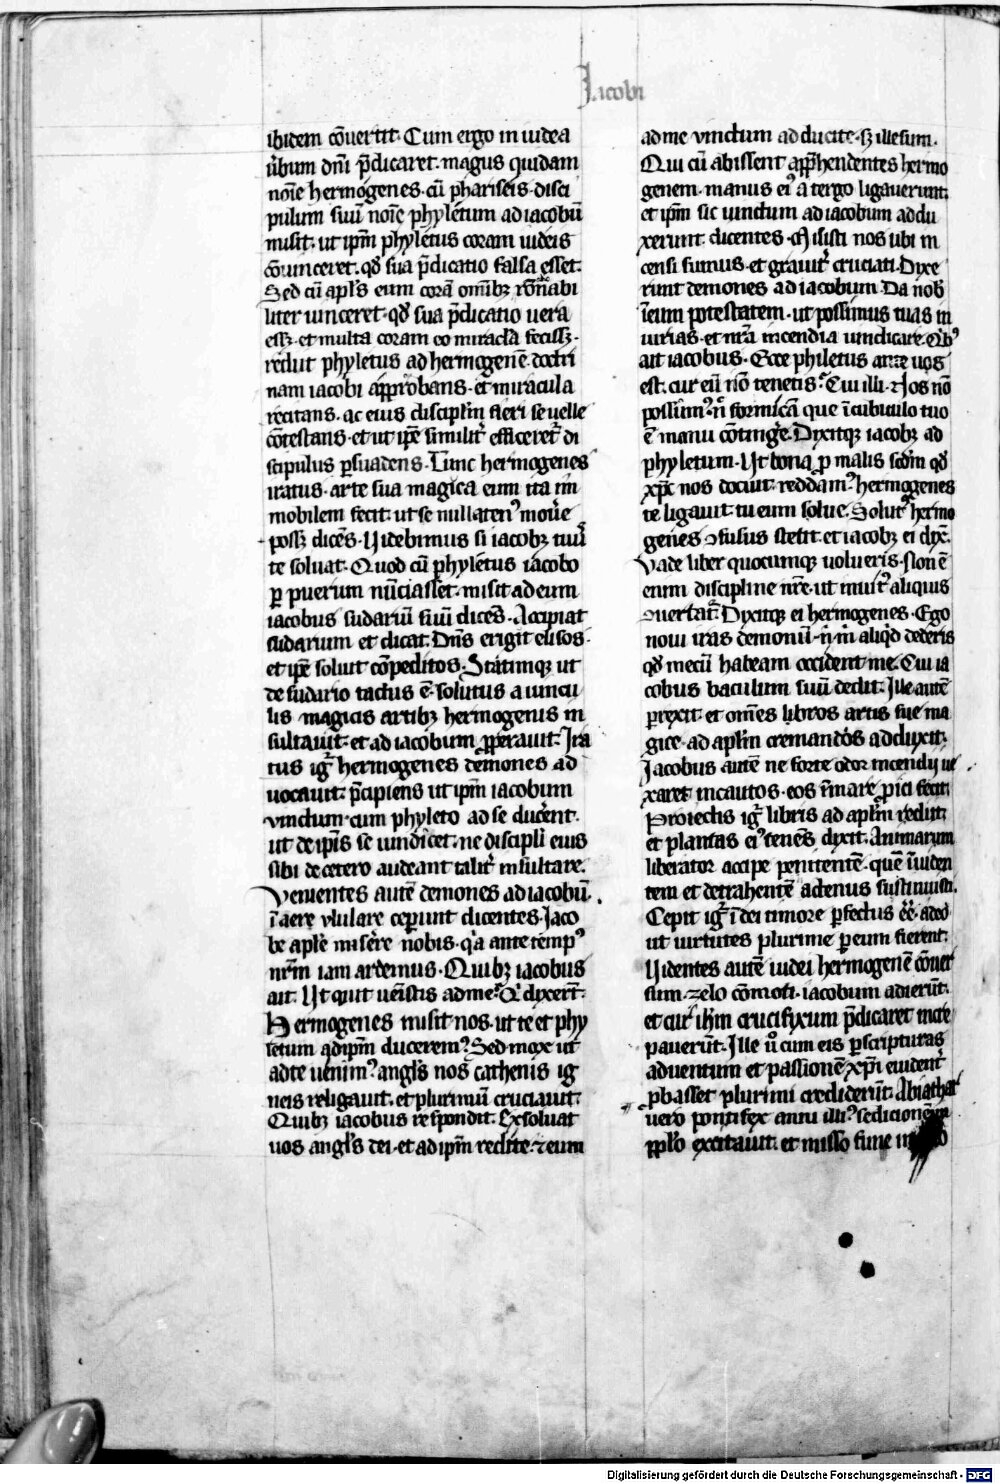 Jacobi
ibidem cōuertit. Cum ergo in iudea
ūbum dn̄i p̄dicaret. magus quidam
noīe hermogenes. cū phariseis disci
pulum suū noīe phyletum ad iacobū
misit. ut ip̄m phyletus coram iudeis
cōuinceret. qd̓ sua p̄dicatio falsa esset.
Sed cū apl̄s eum corā om̄ibꝫ rōn̄abi
liter uinceret. qd̓ sua p̄dicatio uera
essꝫ. et multa coram eo miracl̄a fecissꝫ.
rediit phyletus ad hermogenē doctri
nam iacobi app̄robans. et miracula
recitans. ac eius disciplīn fieri se uelle
cōtestans. et ut ip̄e similit̓ efficeret̓ di
scipulus ꝑsuadens. Tunc hermogenes
iratus. arte sua magica eum ita im
mobilem fecit. ut se nullatenꝰ mou̓e
possꝫ dicēs. Videbimus si iacobꝫ tuꝰ
te soluat. Quod cū phyletus iacobo
ꝑ puerum nūciasset. misit ad eum
iacobus sudariū suū dicēs. Accipiat
sudarium et dicat. Dn̄s erigit elisos.
et ip̄e soluit cōpeditos. Statimqꝫ ut
de sudario tactus ē. solutus a uincu
lis magicis artibꝫ hermogenis in
sultauit. et ad iacobum ꝓperauit. Ira
tus ig̓ hermogenes demones ad
uocauit. p̄cipiens ut ip̄m iacobum
vinctum cum phyleto ad se ducer̄ent.
ut de ip̄is se uindicet. ne discipli eius
sibi de cetero audeant talit̓ insultare.
Venientes autē demones ad iacobū.
ī aere vlulare ceperunt dicentes. Jaco
be apl̄e misere nobis. q̓a ante tempꝰ
nr̄m iam ardemus. Quibꝫ iacobus
ait. Ut quit uēistis ad me? Q̓ dixer̄t.
Hermogenes misit nos. ut te et phy
letum ad ip̄m duceremꝰ. Sed mox ut
ad te uenimꝰ. angl̄s nos cathenis ig
neis religauit. et plurimū cruciauit.
Quibꝫ iacobus respondit. Exsoluat
uos angl̄s dei. et ad ip̄m redite. ⁊ eum
ad me vinctum adducite. sꝫ illesum.
Qui cū abissent app̄hendentes hermo
genem. manus eiꝰ a tergo ligauerunt.
et ip̄m sic uinctum ad iacobum addu
xerunt. dicentes. Misisti nos ubi in
censi sumus. et grauit̓ cruciati. Dixe
runt demones ad iacobum. Da nob̓
ī eum potestatem. ut possimus tuas in
iurias. et nr̄a incendia uindicare. Qbꝰ
ait iacobus. Ecce philetus ante uos
est. cur eū nō tenetis? Cui illi. Nos nō
possumꝰ n̄ formicā que ī cubiculo tuo
ē manu cōtinge. Dixitqꝫ iacobꝫ ad
phyletum. Ut bona ꝓ malis scd̄m qd̓
xp̄c nos docuit. reddamꝰ. hermogenes
te ligauit. tu eum solue. Solutꝰ hermo
genes ꝯfusus stetit. et iacobꝫ ei dix̄.
Vade liber quocumqꝫ uolueris. Non ē
enim discipline nr̄e. ut inuitꝰ aliquis
ꝯuertat̓. Dixitqꝫ ei hermogenes. Ego
noui iras demonū. n̄ m̄ aliqd̓ dederis
qd̓ mecū habeam occident me. Cui ia
cobus baculum suū dedit. Ille autē
ꝑrexit. et om̄es libros artis sue ma
gice. ad aplm̄ cremandos adduxit.
Jacobus autē ne forte odor incendij ue
xaret incautos. eos ī mare ꝓici fecit.
Proiectis ig̓ libris ad aplm̄ rediit.
et plantas eiꝰ tenēs dixit. Animarum
liberator accipe penitentē. quē īuiden
tem et detrahentē actenus sustinuisti.
Cepit ig̓ ī dei timore ꝑfectus ēē. adeo
ut uirtutes plurime ꝑ eum fierent.
Videntes autē iudei hermogenē cōuer
sum. zelo cōmoti. iacobum adierūt.
et cur ih̄m crucifixum p̄dicaret incre
pauerūt. Ille u̓o cum eis ꝑ scripturas
aduentum et passionē xp̄i euident̓
ꝓbasset plurimi crediderūt. Abiathar
uero pontifex anni illiꝰ sedicionē in
pplo excitauit. et misso fune in
Digitalisierung gefördert durch die Deutsche Forschungsgemeinschaft - DFG